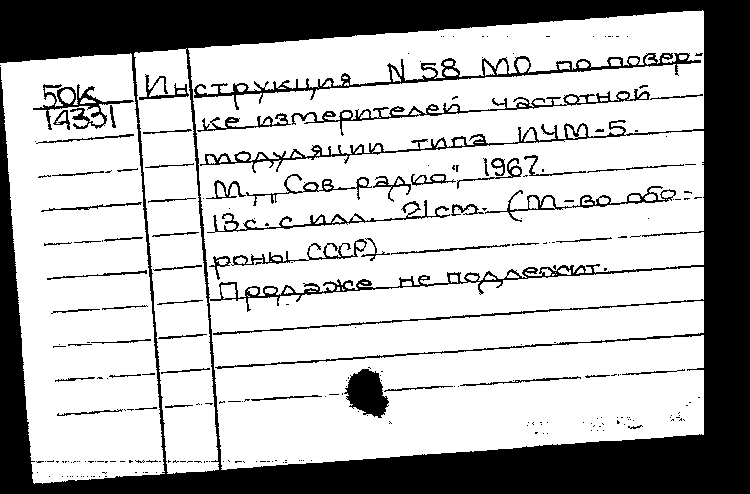 50К
14331
Инструкция N 58 МО по повер-
ке измерителей частотной
модуляции типа ИЧМ-5.
М., „Сов. радио", 1967.
13с. с илл. 21см. (М-во обо-
роны СССР).
Продаже не подлежит.